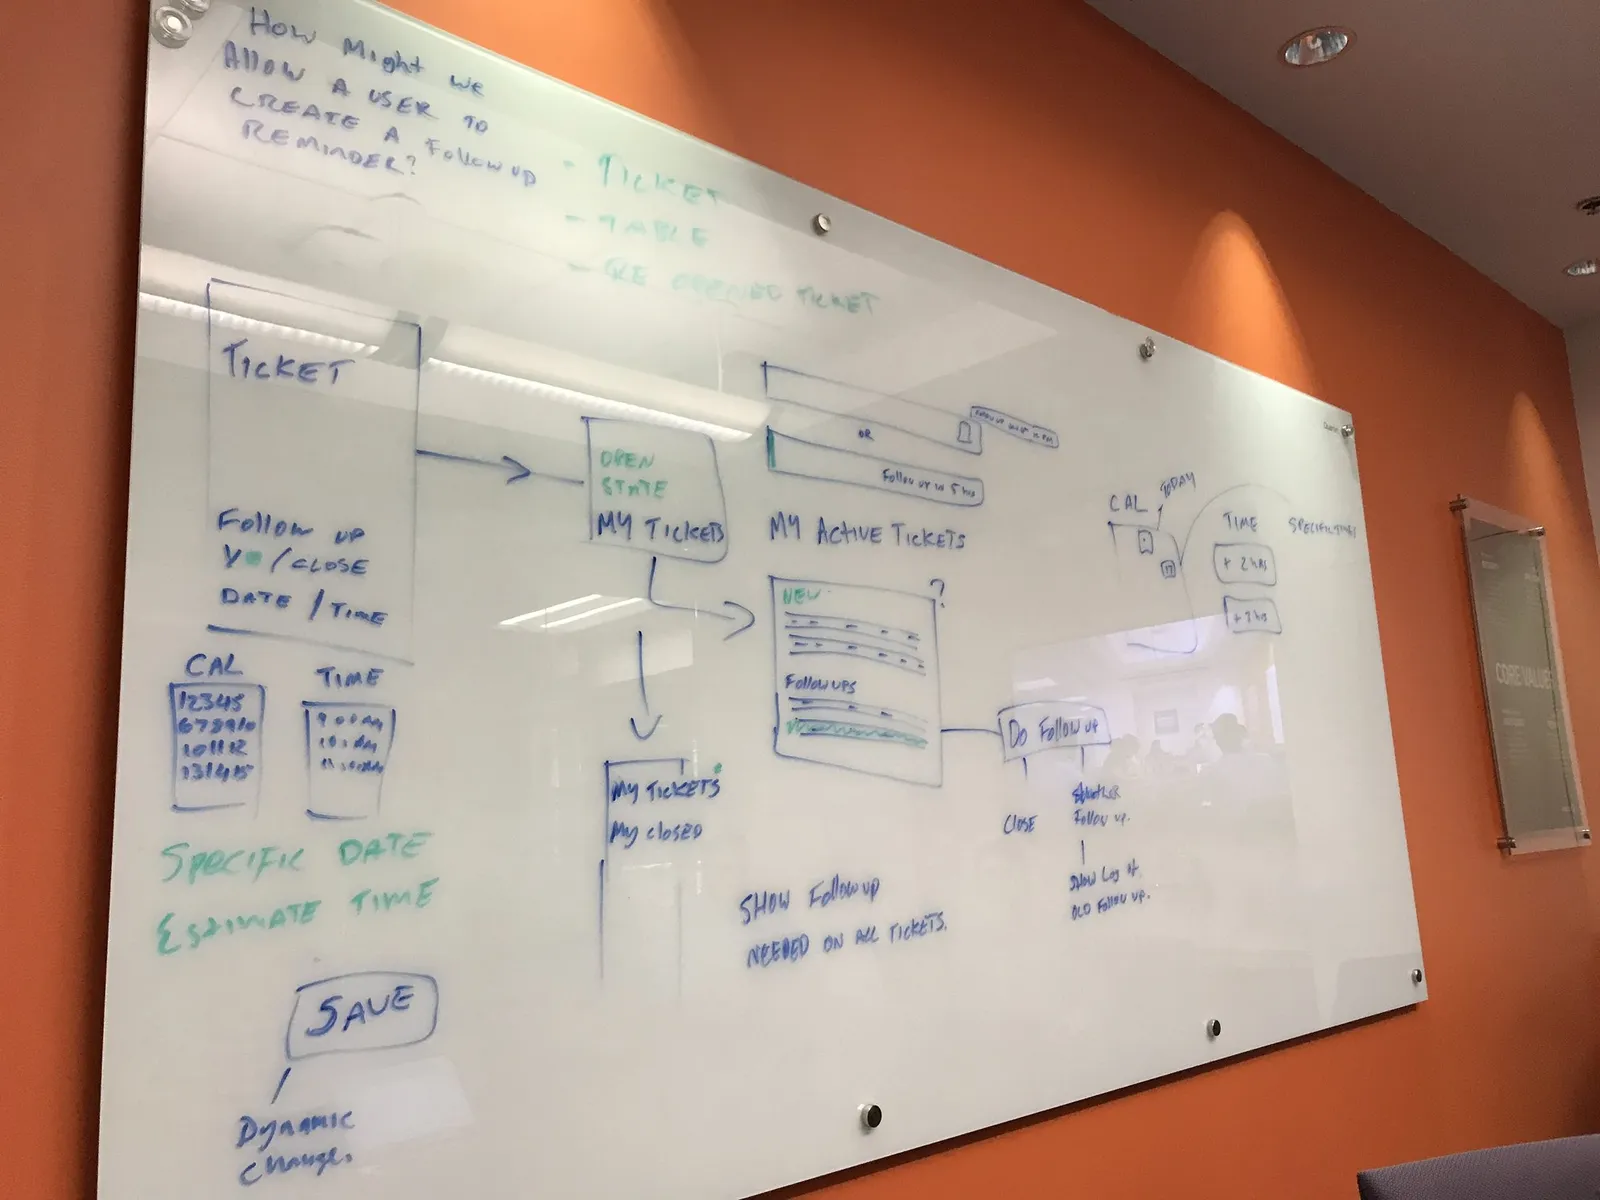 How Might We
Allow A USER TO
CREATE A Follow UP
REMINDER?
- TICKET
- TABLE
- RE OPENED TICKET
TICKET
Follow up
/CLOSE
DATE / TIME
CAL
12345
678910
101112
131415
TIME
SPECIFIC DATE
ESTIMATE TIME
SAVE
Dynamic
change.
OPEN
STATE
MY TICKETS
My TICKETS
My closed
OR
Follow up in 5 hrs
MY ACTIVE TICKETS
?
NEW
Follow ups
Do Follow up
CLOSE
Another
Follow up.
SHOW Log of
OLD Follow up.
SHOW Followup
NEEDED ON ALL TICKETS.
CAL
TODAY
17
TIME
+ 2 hrs
SPECIFIC
CORE VALUES